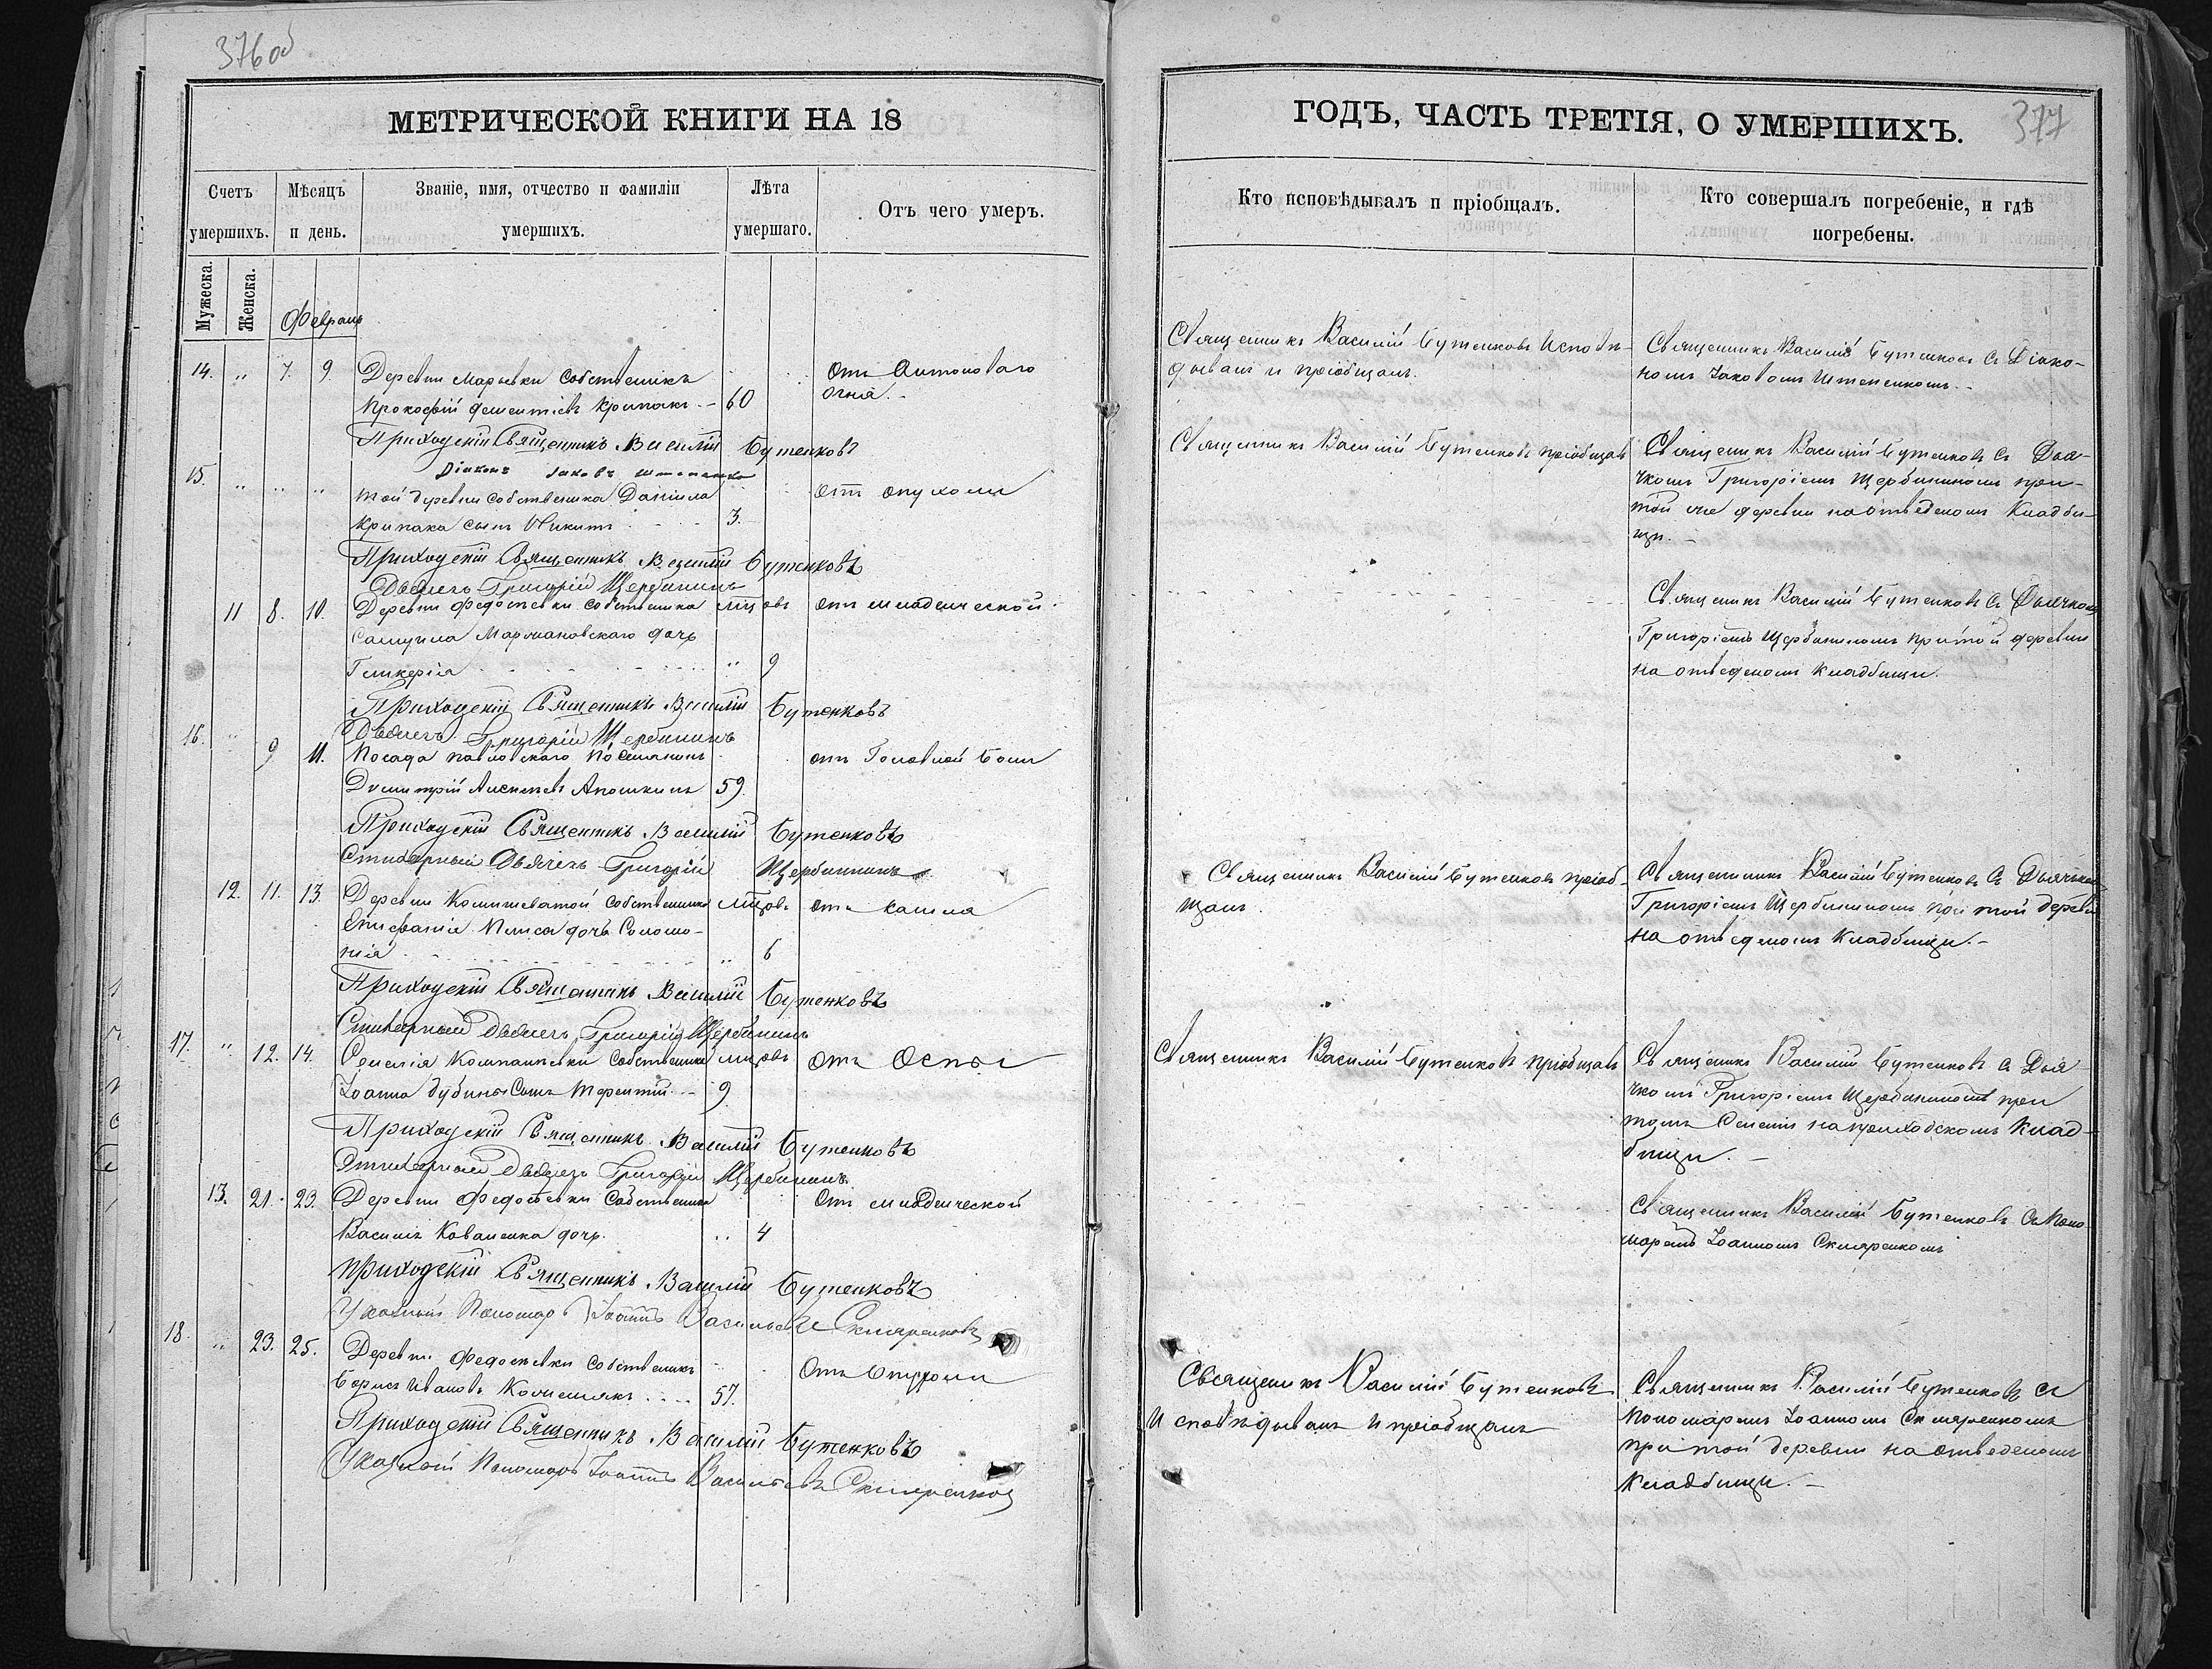 376 об
МЕТРИЧЕСКОЙ КНИГИ НА 18
Счетъ умершихъ.
Мѣсяцъ и день.
Званіе, имя, отчество и фамиліи умершихъ.
Лѣта умершаго.
Отъ чего умеръ.
Мужеска.
Женска.
Февраль
14. „ 7. 9. Деревни Марьевки Собственникъ
Прокофій Дементіевъ Крипакъ - 60
Отъ Антоноваго
огня.-
Приходскій Священникъ Василій Бутенковъ
Діаконъ Іаковъ
15. „ „ „ той деревни собственника Даніила
Крипака сынъ Никита 3.
отъ опухоли
Приходскій Священникъ Василій Бутенковъ
Дьячекъ Григорій Щербининъ
11 8. 10. Деревни Федоровки собственника мѣсцовъ отъ младенческой
Самуила дочь
Гликерія „ 9
Приходскій Священникъ Василій Бутенковъ
Дьячекъ Григорій Щербининъ
16. „ 9 11. Посада Павловскаго Поселянинъ отъ Головной боли
Димитрій 59.
Приходскій Священникъ Василій Бутенковъ
Стихарный Дьячекъ Григорій Щербининъ
12. 11. 13. Деревни Камышеватой собственника мѣсцовъ отъ кашля
дочь Соломо-
нія „ 6
Приходскій Священникъ Василій Бутенковъ
Стихарный Дьячекъ Григорій Щербининъ
17. „ 12. 14. Селенія собственника мѣсцовъ отъ Оспы
Іоанна Дубины Сынъ Терентій - 9
Приходскій Священникъ Василій Бутенковъ
Стихарный Дьячекъ Григорій Щербининъ
13. 21. 23. Деревни Федоровки Собственника Отъ младенческой
Василія Коваленка дочь „ 4
Приходскій Священникъ Василій Бутенковъ
Указный Пономарь Іоаннъ Васильевъ Скляренковъ
18. „ 23. 25. Деревни Федоровки Собственникъ
Борисъ Ивановъ 57.
Отъ Опухоли
Приходскій Священникъ Василій Бутенковъ
Указный Пономарь Іоаннъ Васильевъ Скляренковъ
ГОДЪ, ЧАСТЬ ТРЕТІЯ, О УМЕРШИХЪ. 377
Кто исповѣдывалъ и пріобщалъ.
Кто совершалъ погребеніе, и гдѣ погребены.
Священникъ Василій Бутенковъ Исповѣ-
дывалъ и пріобщалъ.
Священникъ Василій Бутенковъ съ Діако-
номъ Іаковомъ
Священникъ Василій Бутенковъ пріобщалъ
Священникъ Василій Бутенковъ съ Дья-
чкомъ Григоріемъ Щербининомъ при
той же деревни на отведеномъ Кладби-
щи.-
Священникъ Василій Бутенковъ съ Дьячкомъ
Григоріемъ Щербининомъ при той деревни
на отведеномъ кладбищи.
Священникъ Василій Бутенковъ пріоб-
щалъ.
Священникъ Василій Бутенковъ съ Дьячкомъ
Григоріемъ Щербининомъ при той деревни
на отведеномъ Кладбищи.-
Священникъ Василій Бутенковъ пріобщалъ
Священникъ Василій Бутенковъ съ Дья-
чкомъ Григоріемъ Щербининомъ при
томъ Селеніи на приходскомъ Клад-
бищи.-
Священникъ Василій Бутенковъ съ Поно-
маремъ Іоанномъ Скляренкомъ
Священникъ Василій Бутенковъ
Исповѣдывалъ и пріобщалъ
Священникъ Василій Бутенковъ съ
Пономаремъ Іоанномъ Скляренкомъ
при той деревни на отведеномъ
Кладбищи.-